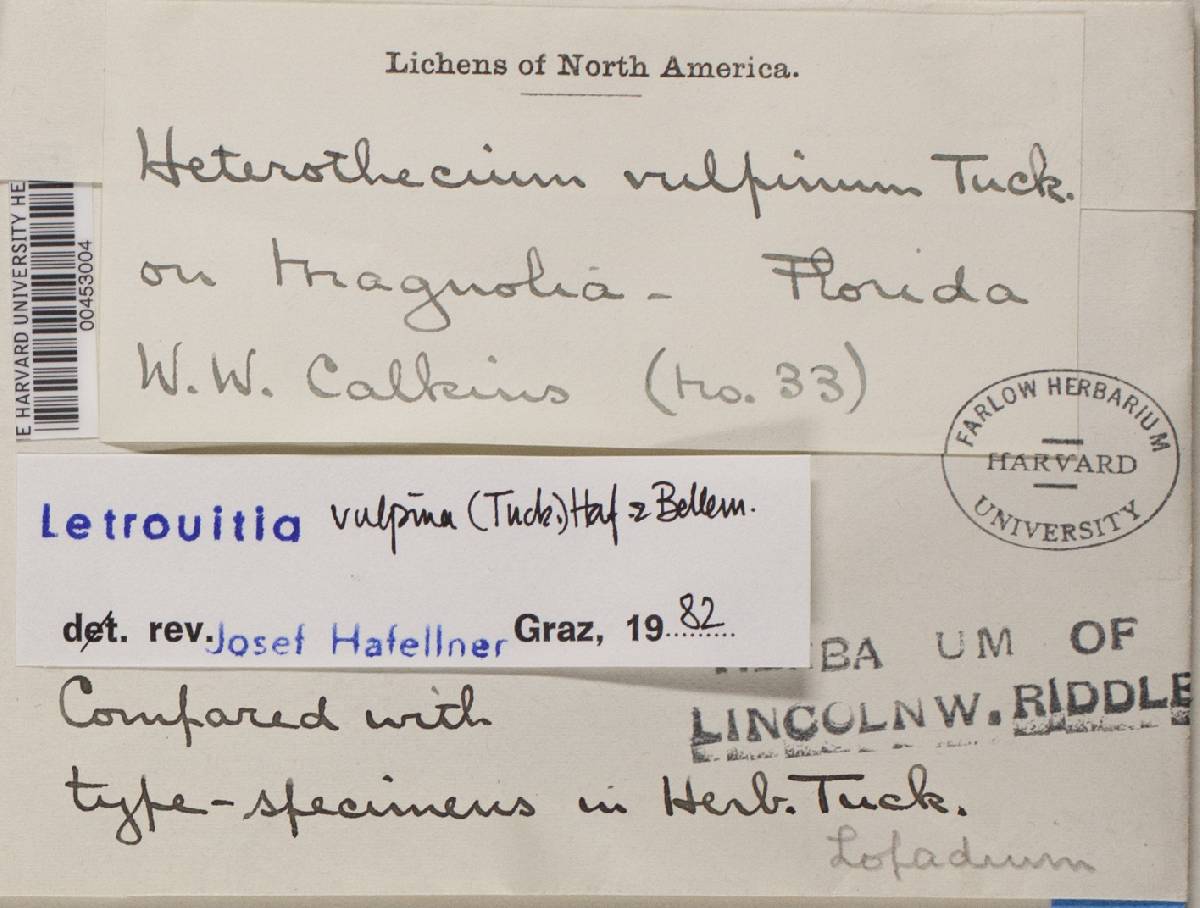 Lichens of North America.
Heterothecium vulpinum Tuck.
on Magnolia - Florida
W.W. Calkins (No. 33)
E HARVARD UNIVERSITY HE
00453004
FARLOW HERBARIUM
HARVARD
UNIVERSITY
Letrouitia vulpina (Tuck.) Haf. & Bellem.
det. rev. Josef Hafellner Graz, 1982
UM OF
LINCOLN W. RIDDLE
Compared with
type-specimens in Herb. Tuck.
Lopadium